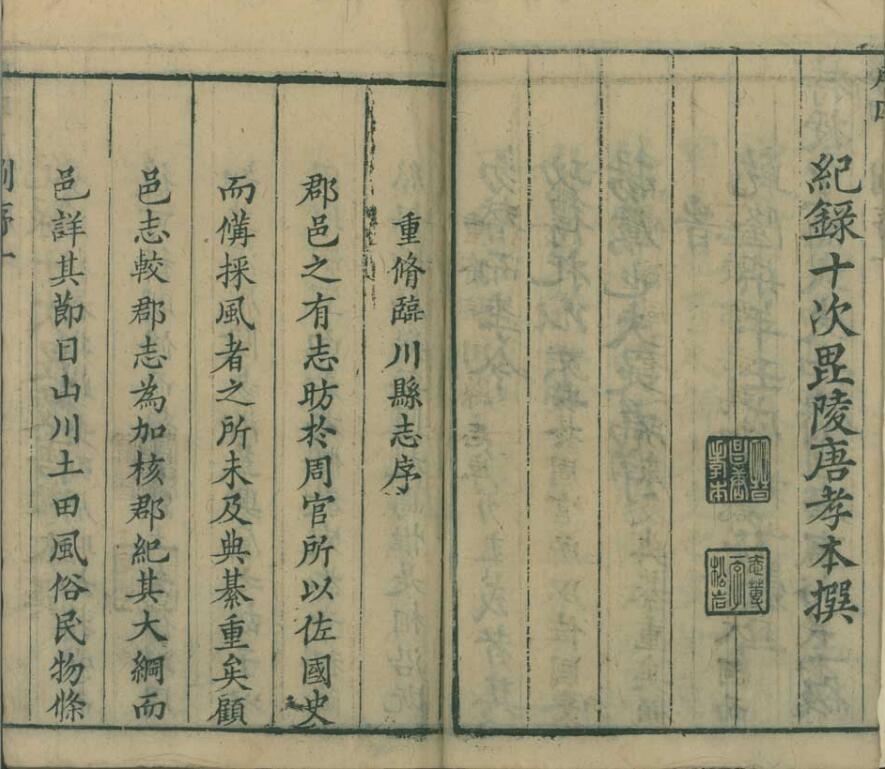 紀錄十次毘陵唐孝本撰
重脩臨川縣志序
郡邑之有志昉於周官所以佐國史
而俻採風者之所未及典綦重矣顧
邑志較郡志為加核郡紀其大綱而
邑詳其節目山川土田風俗民物條